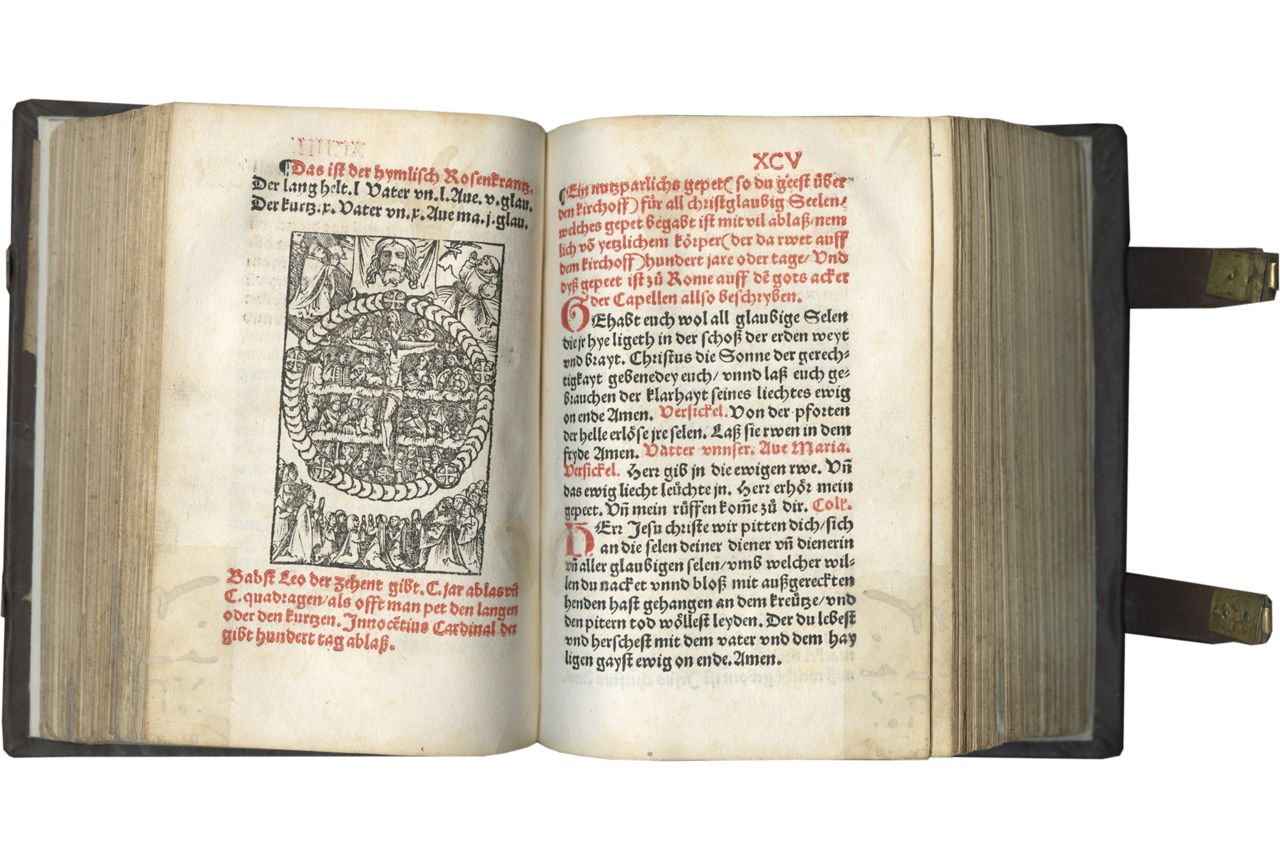 ¶Das ist der hymlisch Rosenkrantz.
Der lang helt.l Vater vn.l.Aue.v.glau.
Der kurtz.x.Vater vn.x.Aue ma.j.glau.
Babst Leo der zehent gibt.C.jar ablas vñ
C.quadragen/als offt man pet den langen
oder den kurtzen. Innocētius Cardinal der
gibt hundert tag ablaß.
XCV
¶Ein nutzparlichs gepet(so du geest über
den kirchoff)für all christglaubig Seelen/
welches gepet begabt ist mit vil ablaß/nem
lich võ yetzlichem körper(der da rwet auff
dem kirchoff)hundert jare oder tage/Vnd
dyß gepeet ist zů Rome auff dē gots acker
der Capellen allso beschryben.
GEhabt euch wol all glaubige Selen
die jr hye ligeth in der schoß der erden weyt
vnd brayt. Christus die Sonne der gerech-
tigkayt gebenedey euch/vnnd laß euch ge-
brauchen der klarhayt seines liechtes ewig
on ende Amen. Versickel. Von der pforten
der helle erlöse jre selen. Laß sie rwen in dem
fryde Amen. Vatter vnnser. Aue Maria.
Versickel. Herr gib jn die ewigen rwe. Vñ
das ewig liecht leüchte jn. Herr erhör mein
gepeet. Vñ mein rüffen kom̄e zů dir. Coll'.
HErr Jesu christe wir pitten dich/sich
an die selen deiner diener vñ dienerin
vñ aller glaubigen selen/vmb welcher wil-
len du nacket vnnd bloß mit außgereckten
henden hast gehangen an dem kreütze/vnd
den pitern tod wöllest leyden. Der du lebest
vnd herschest mit dem vater vnd dem hay
ligen gayst ewig on ende. Amen.